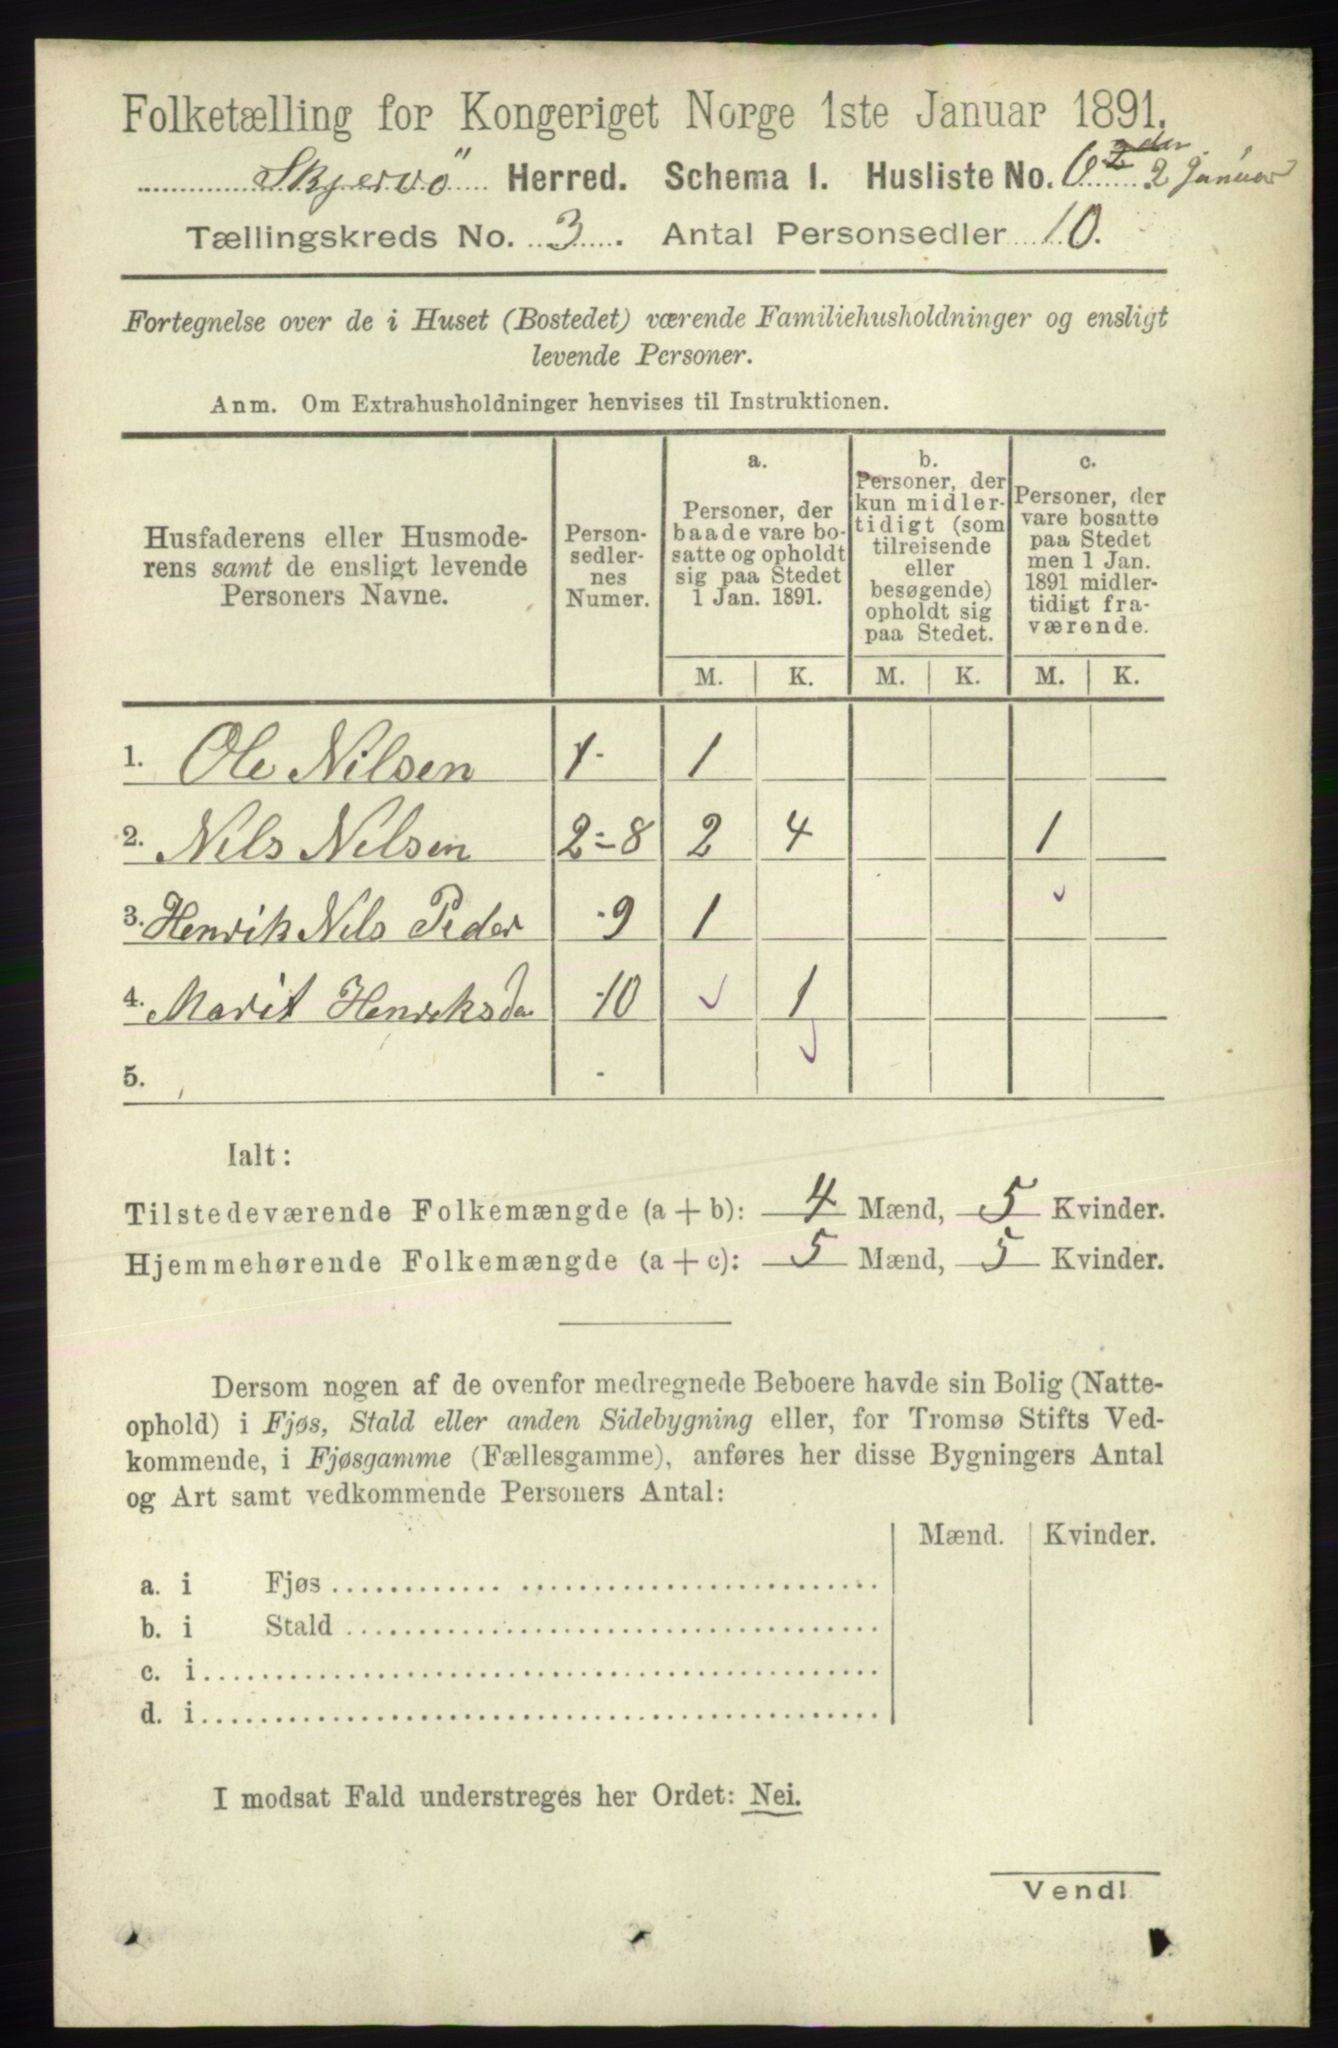 Folketælling for Kongeriget Norge 1ste Januar 1891.
Skjervö Herred. Schema 1. Husliste No. 6 2 den 2 Januar
Tællingskreds No. 3. Antal Personsedler 10.
Fortegnelse over de i Huset (Bostedet) værende Familiehusholdninger og ensligt
levende Personer.
Anm. Om Extrahusholdninger henvises til Instruktionen.
Husfaderens eller Husmode-
rens samt de ensligt levende
Personers Navne.
Person-
sedler-
nes
Numer.
a.
Personer, der
baade vare bo-
satte og opholdt
sig paa Stedet
1 Jan. 1891.
b.
Personer, der
kun midler-
tidigt (som
tilreisende
eller
besøgende)
opholdt sig
paa Stedet.
c.
Personer, der
vare bosatte
paa Stedet
men 1 Jan.
1891 midler-
tidigt fra-
værende.
M. K. M. K. M. K.
1. Ole Nilsen 1- 1
2. Nils Nilsen 2=8 2 4 1
3. Henrik Nils Peder -9 1
4. Marit Henriksda -10 1
5. -
Ialt:
Tilstedeværende Folkemængde (a + b): 4 Mænd, 5 Kvinder.
Hjemmehørende Folkemængde (a + c): 5 Mænd, 5 Kvinder.
Dersom nogen af de ovenfor medregnede Beboere havde sin Bolig (Natte-
ophold) i Fjøs, Stald eller anden Sidebygning eller, for Tromsø Stifts Ved-
kommende, i Fjøsgamme (Fællesgamme), anføres her disse Bygningers Antal
og Art samt vedkommende Personers Antal:
Mænd. Kvinder.
a. i Fjøs
b. i Stald
c. i
d. i
I modsat Fald understreges her Ordet: Nei.
Vend!